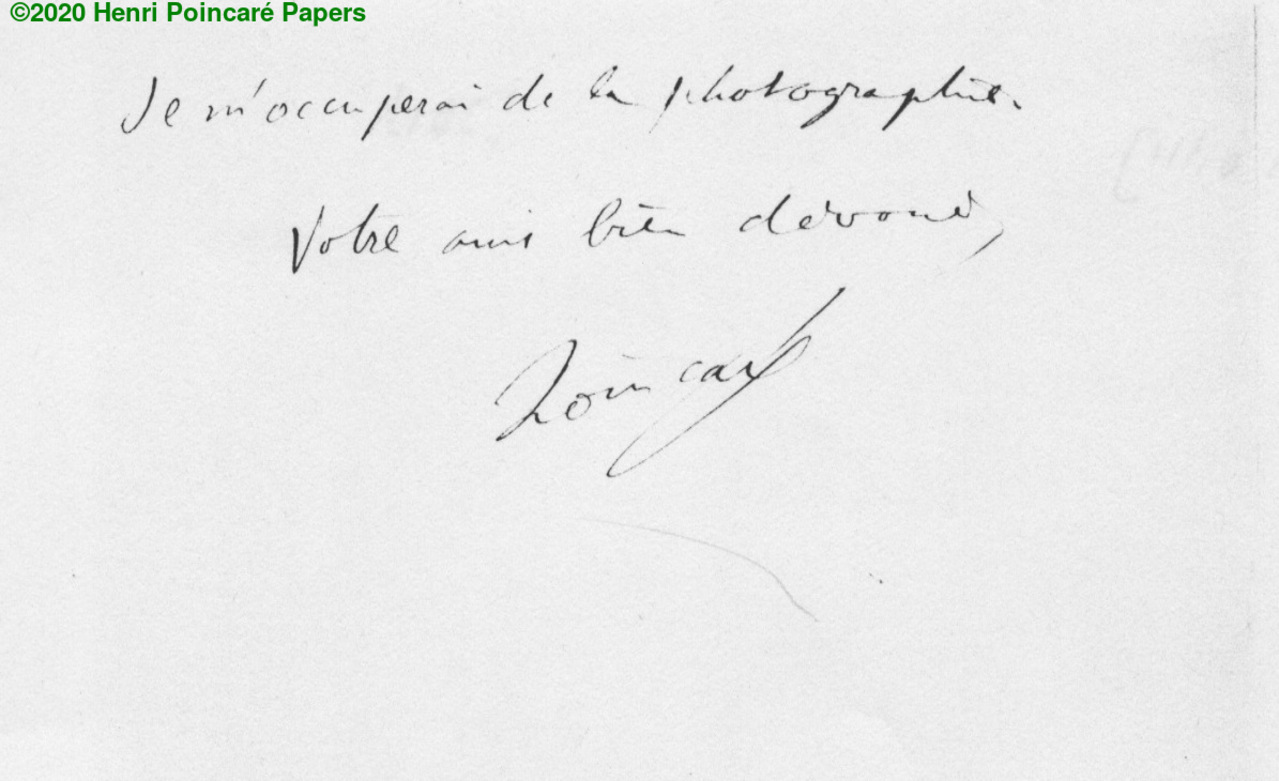 ©2020 Henri Poincaré Papers
Je m'occuperai de la photographie.
Votre ami bien dévoué,
Poincaré